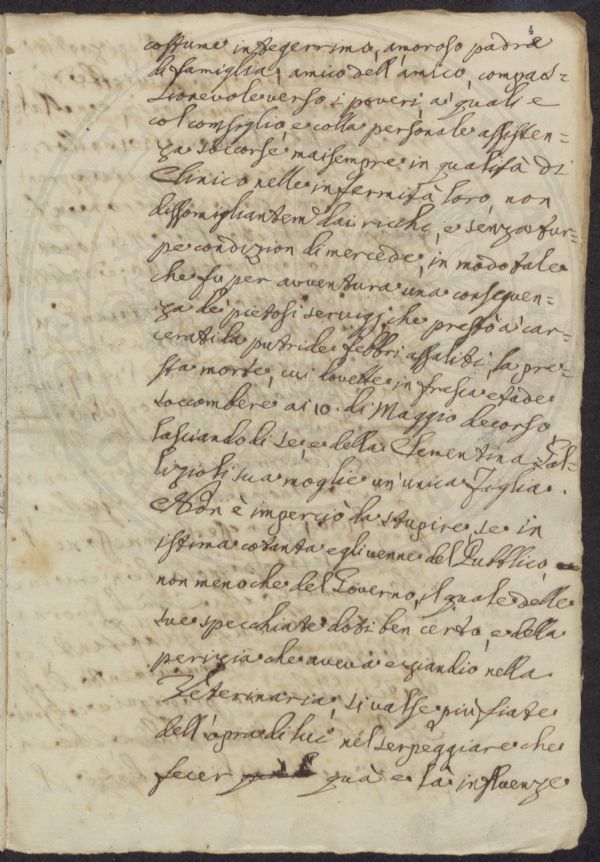 4
costume integerrimo, amoroso padre
di famiglia, amico dell'amico, compas=
sionevole verso i poveri a' quali e
col consiglio, e colla personale assisten=
za soccorse maisempre in qualità di
Clinico nelle infermità loro, non
dissomigliantem.e dai ricchi, e senza tur=
pe condizion di mercede, in modo tale
che fu per avventura una conseguen=
za de' pietosi servigj, che prestò a' car=
cerati da putride febbri assaliti, la pre=
sta morte, cui dovette in fresca etade
soccombere ai 10. di Maggio decorso
lasciando di se, e della Clementina
sua moglie un'unica Figlia.
Non è imperciò da stupire, se in
istima cotanta egli venne del Pubblico,
non meno che del Governo, il quale delle
sue specchiate doti ben certo, e della
perizia che aveva eziandio nella
Veterinaria, si valse più fiate
dell'opra di lui nel serpeggiare che
fecer quà e là influenze